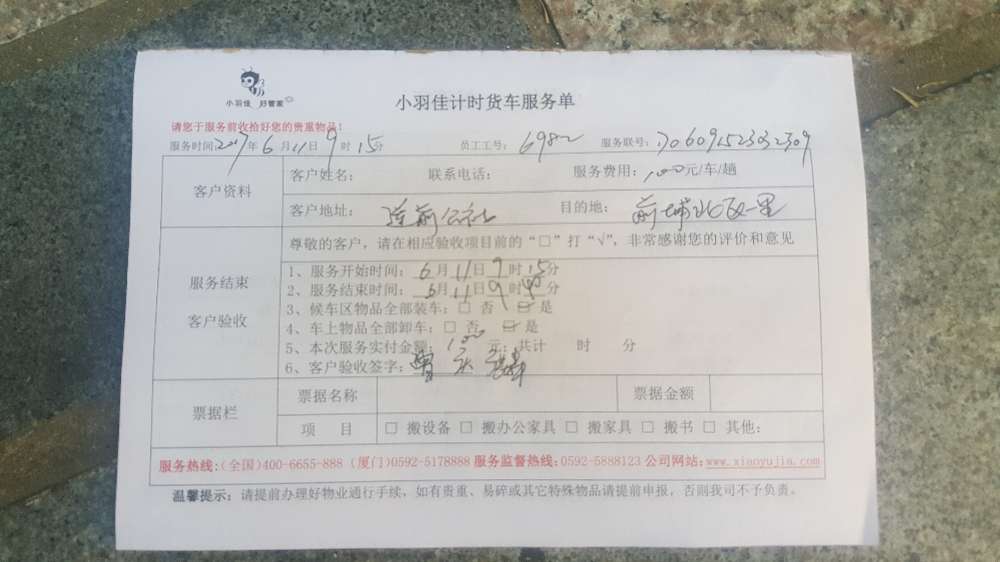 小羽佳 好管家
小羽佳计时货车服务单
请您于服务前收拾好您的贵重物品!
服务时间:2017年6月11日9时15分 员工工号: 6982 服务联号:
客户资料
客户姓名: 联系电话: 服务费用:100元/车/趟
客户地址: 莲前公社 目的地: 前埔北区一里
服务结束
客户验收
尊敬的客户,请在相应验收项目前的“□”打“√”,非常感谢您的评价和意见
1、服务开始时间:6月11日9时15分
2、服务结束时间:6月11日9时40分
3、候车区物品全部装车:□ 否 □ 是
4、车上物品全部卸车:□ 否 □ 是
5、本次服务实付金额:100元;共计 时 分
6、客户验收签字:曾
票据栏
票据名称 票据金额
项 目 □ 搬设备 □ 搬办公家具 □ 搬家具 □ 搬书 □ 其他:
服务热线:(全国)400-6655-888 (厦门)0592-5178888 服务监督热线:0592-5888123 公司网站:www.xiaoyujia.com
温馨提示:请提前办理好物业通行手续,如有贵重、易碎或其它特殊物品请提前申报,否则我司不予负责。